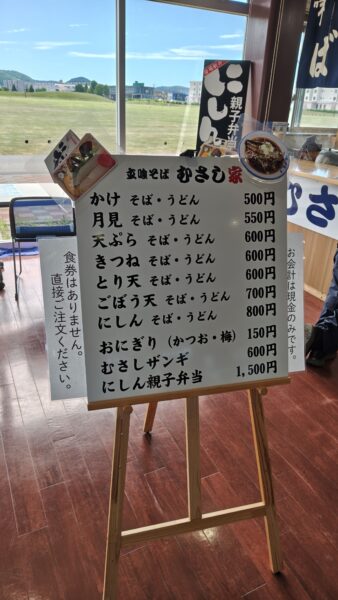 玄味そば むさし家
かけ そば・うどん 500円
月見 そば・うどん 550円
天ぷら そば・うどん 600円
きつね そば・うどん 600円
とり天 そば・うどん 600円
ごぼう天 そば・うどん 700円
にしん そば・うどん 800円
おにぎり（かつお・梅） 150円
むさしザンギ 600円
にしん親子弁当 1,500円
食券はありません。
直接ご注文ください。
お会計は現金のみです。
にしん
親子弁当
そば
むさ